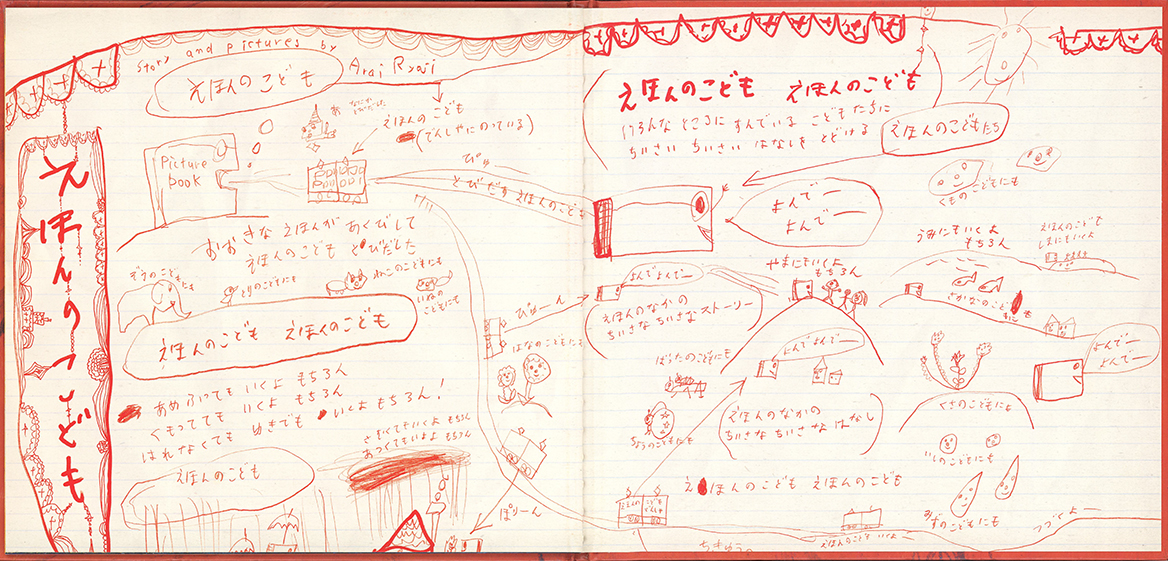 えほんのこども
story and pictures by
Arai Ryoji
えほんのこども
えほんの こども
(でんしゃにのっている)
Picture
book
ぴゅー
とびだす えほんのこども
おおきな えほんが あくびして
えほんのこども とびだした
ぞうのこどもにも
とりのこどもにも
ねこのこどもにも
いぬの
こどもにも
えほんのこども えほんのこども
あめふっても いくよ もちろん
くもってても いくよ もちろん
はれなくても ゆきでも いくよ もちろん!
さむくてもいくよ もちろん
あつくてもいくよ もちろん
えほんのこども
びゅーん
はなのこどもにも
ぽりーん
えほんのこども えほんのこども
いろんな ところに すんでいる こどもたちに
ちいさい ちいさい はなしを とどける
えほんのこどもたち
よんでー
よんでー
くものこどもにも
うみにもいくよ
もちろん
えほんのこども
しまにもいくよ
やまにもいくよ
もちろん
よんでよんでー
えほんのなかの
ちいさな ちいさな ストーリー
さかなのこども
にも
よんでー
よんでー
ばったのこどもにも
よんでよんでー
ちょうのこどもにも
(えほんのなかの
ちいさな ちいさな はなし)
くさのこどもにも
いしのこどもにも
みずのこどもにも
えほんのこども えほんのこども
えほんの
こども
でんしゃ
えほんのこども いくよー
つづくよー
ちきゅうの